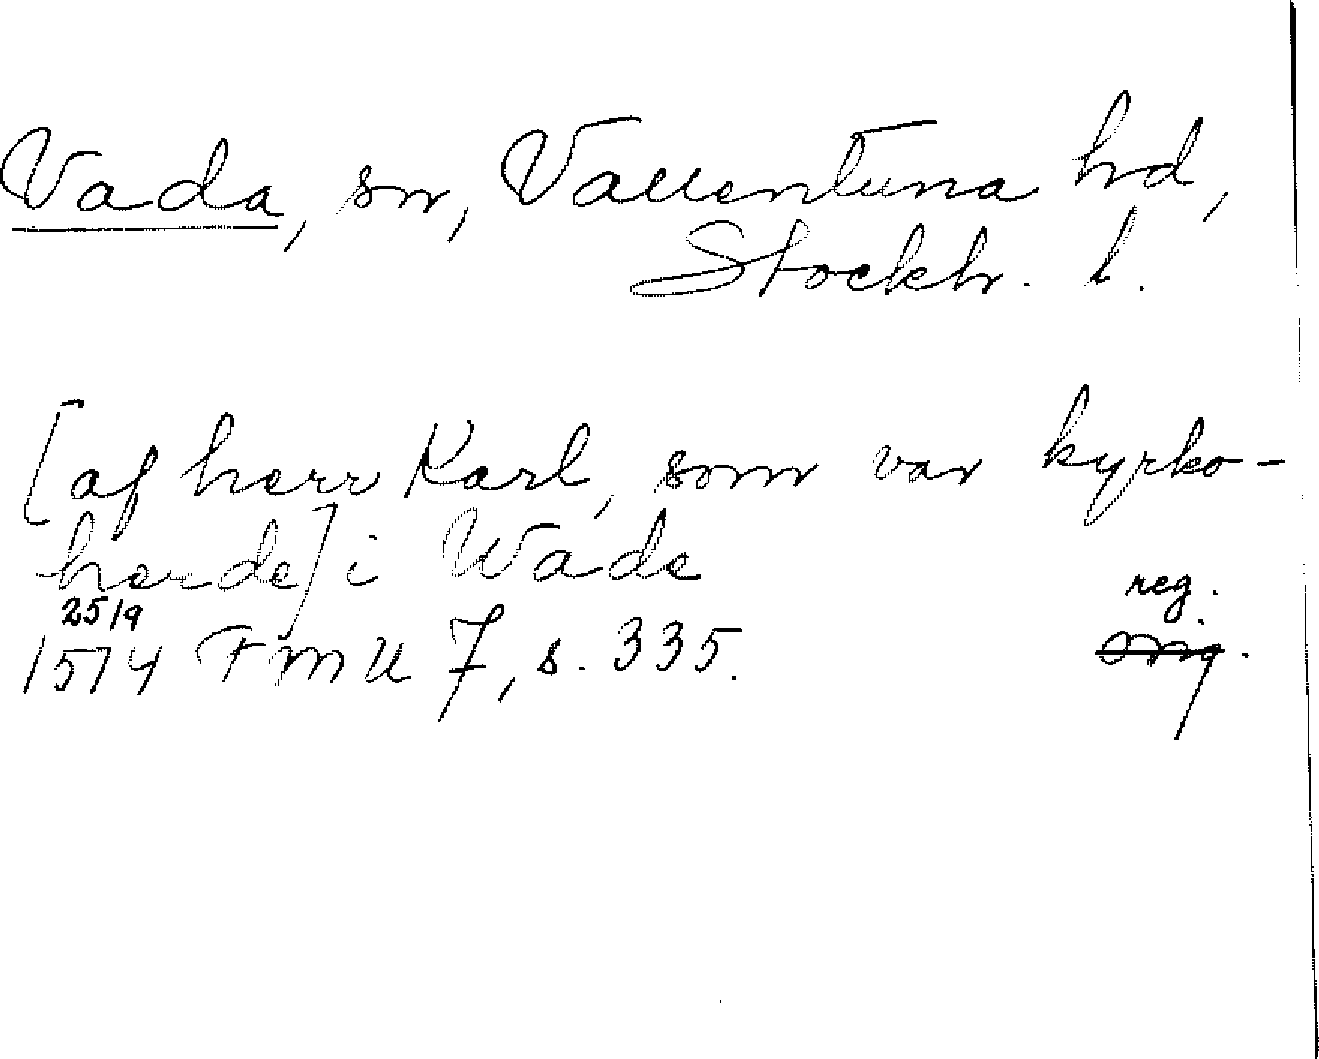 Vada, sn, Vallentuna hd,
Stockh. l.
[af herr Karl, som var kyrko-
herde] i Wade
25/9 reg.
1514 FMU 7, s. 335. orig.